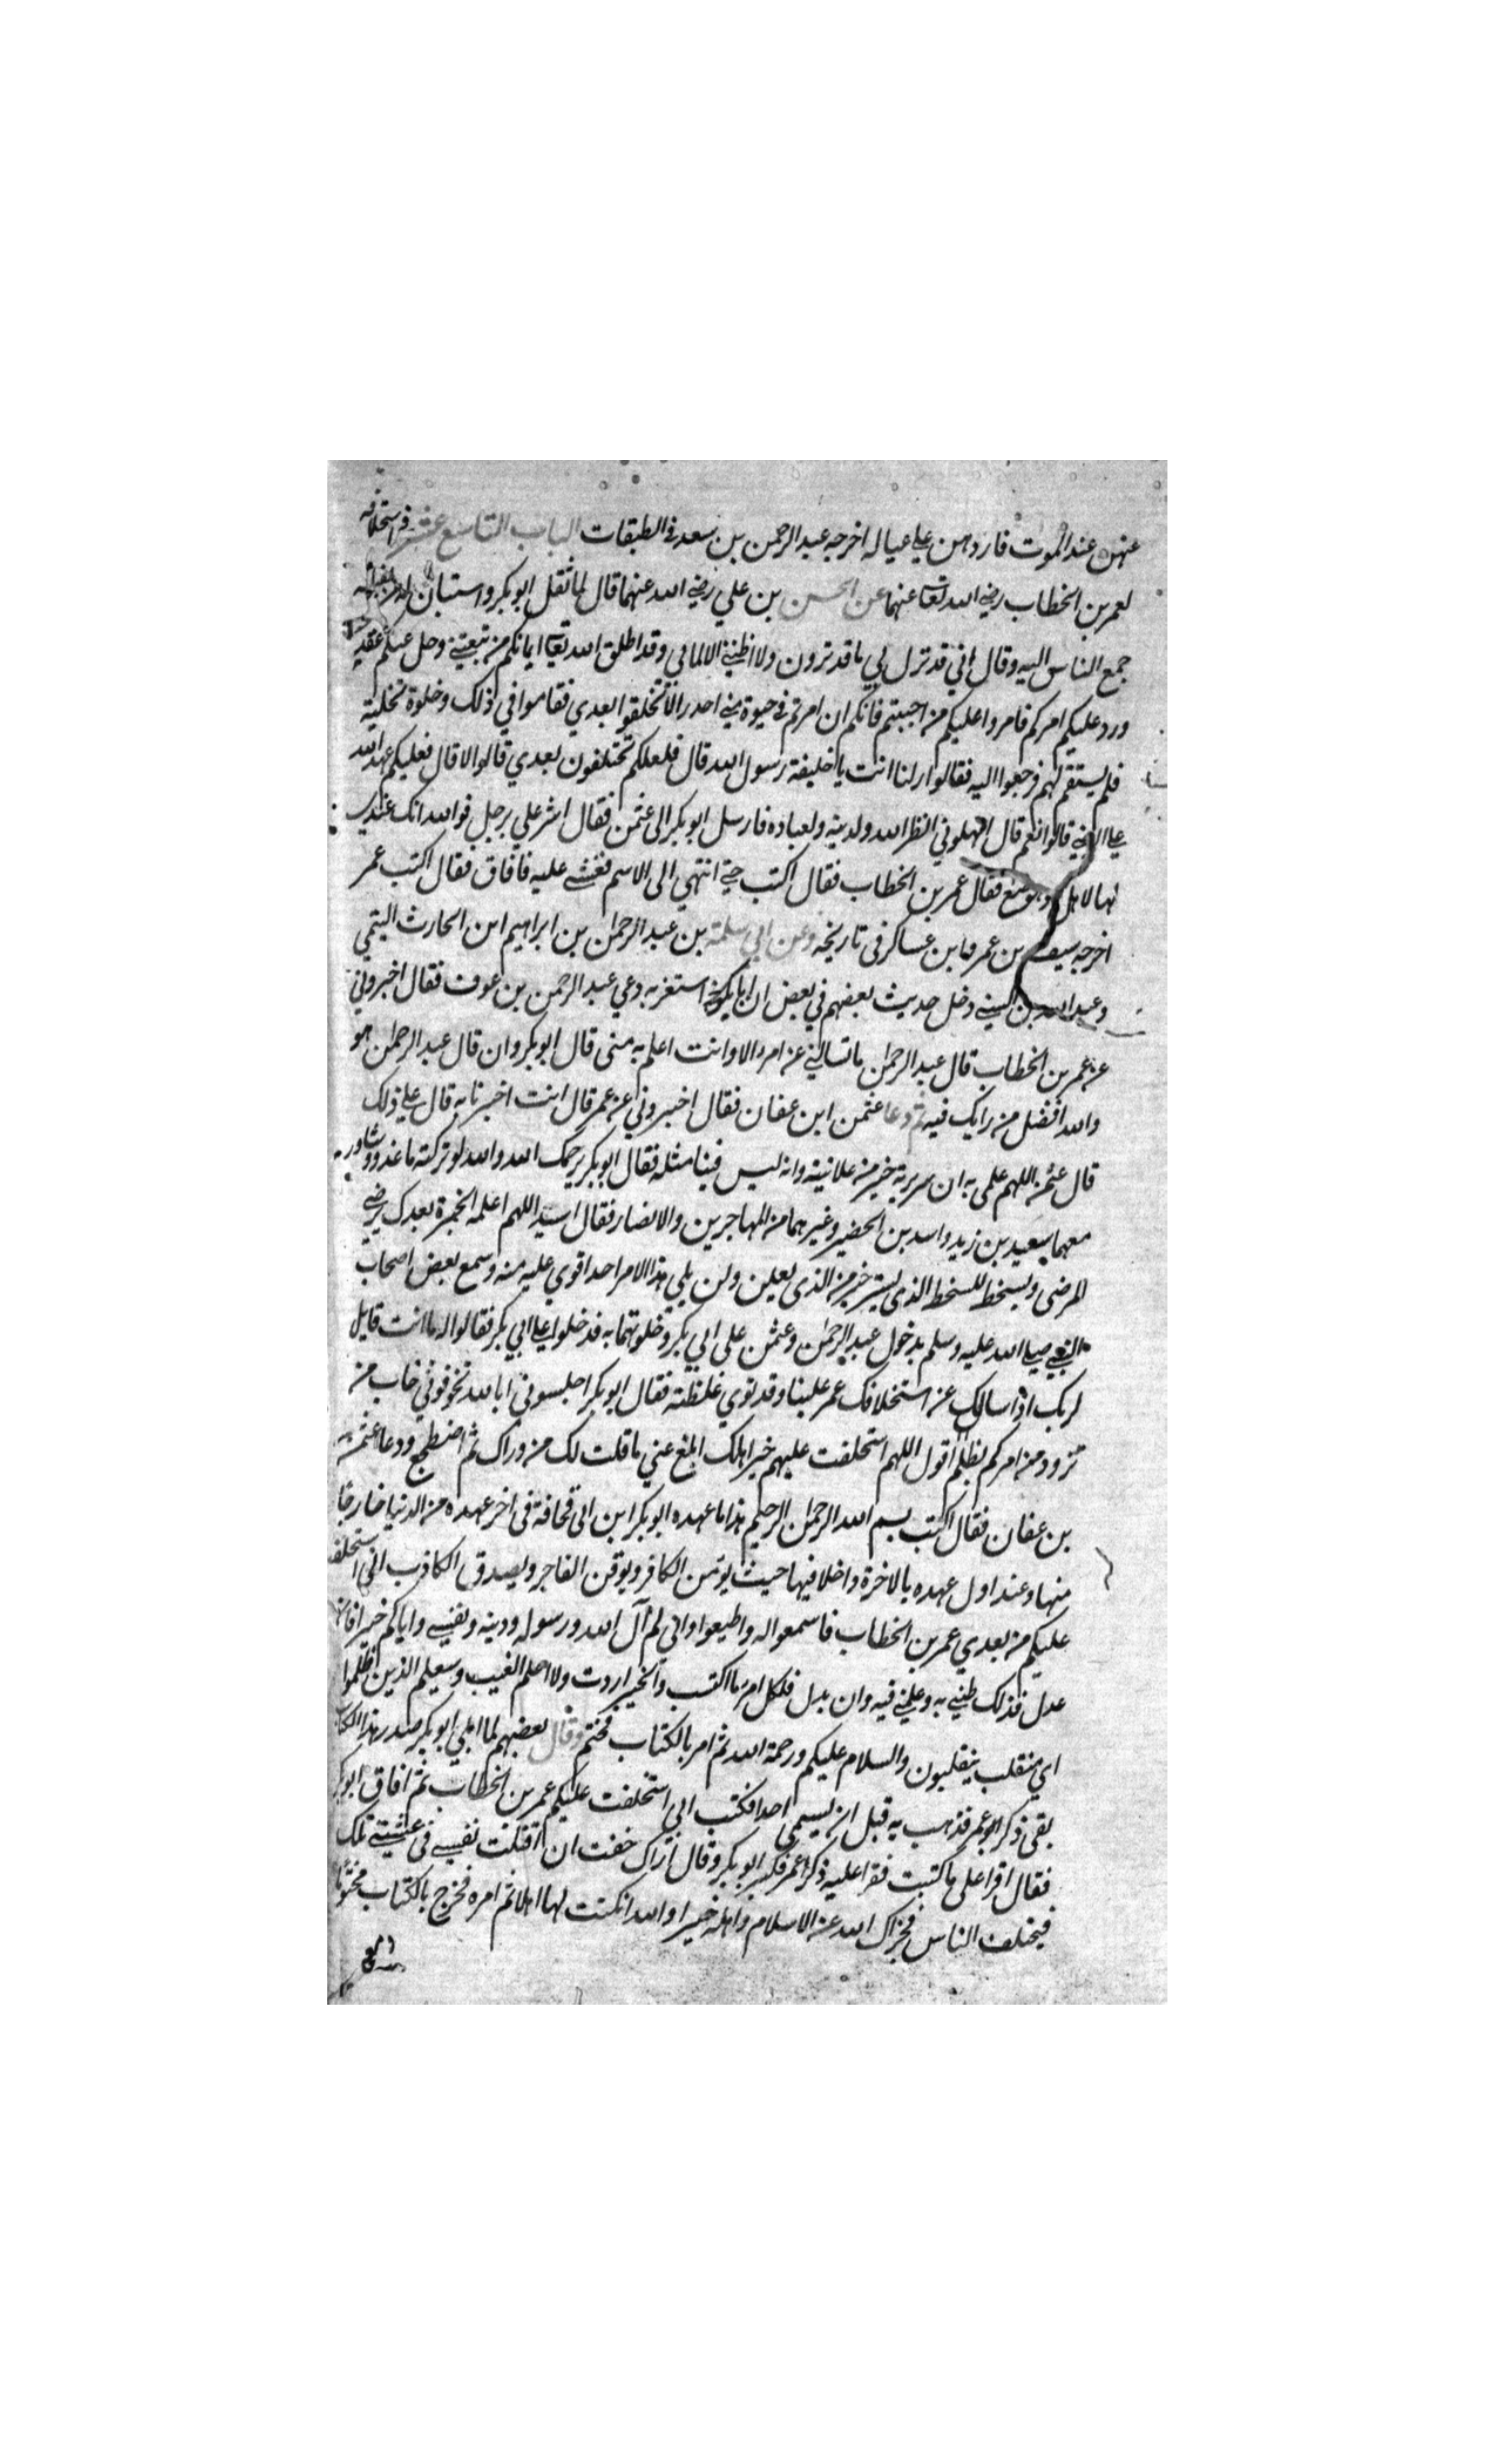 عنهن عند الموت فاردهن علي عياله اخرجه عبد الرحمن بن سعد في الطبقات الباب التاسع عشر في استخلافه
لعمر بن الخطاب رضي الله تعا عنهما عن الحسن بن علي رضي الله عنهما قال لما ثقل ابو بكر واستبان له
جمع الناس اليه وقال اني قد نزل بي ما قد ترون ولا اظنني الا لمابي وقد اطلق الله تعا ايمانكم من بيعتي وحل عنكم عقدي
ورد عليكم امركم فامروا عليكم من احببتم فانكم ان امرتم في حيوة مني اجدر الا تختلفوا بعدي فقاموا في ذلك وخلوه تخلية
فلم يستقم لهم فرجعوا اليه فقالوا ار لنا انت يا خليفة رسول الله قال فلعلكم تختلفون بعدي قالوا لا قال فعليكم عهد الله
علي الرضي قالوا نعم قال امهلوني انظر الله ولدينه ولعباده فارسل ابو بكر الى عثمن فقال اشر علي برجل فوالله انك عندي
لها لاهل وموضع فقال عمر بن الخطاب فقال اكتب حتي انتهي الى الاسم فغشي عليه فافاق فقال اكتب عمر
اخرجه سيف بن عمر وابن عساكر في تاريخه وعن ابي سلمة بن عبد الرحمن بن ابراهيم ابن الحارث التيمي
وعبد الله بن البهي دخل حديث بعضهم في بعض ان ابا بكر استعز به دعي عبد الرحمن بن عوف فقال اخبروني
عن عمر بن الخطاب قال عبد الرحمن ما تسالني عن امر الا وانت اعلم به مني قال ابو بكر وان قال عبد الرحمن هو
والله افضل من رايك فيه ثم دعا عثمن ابن عفان فقال اخبروني عن عمر قال انت اخبرنا به قال علي ذلك
قال عثمن اللهم علمي به ان سريرته خير من علانيته وانه ليس فينا مثله فقال ابو بكر يرحمك الله والله لو تركته ما عدو وشاور
معهما سعيد بن زيد واسد بن الحضير وغيرهما من المهاجرين والانصار فقال اسيد اللهم اعلمه الخيرة بعدك يرضي
للرضى ويسخط للسخط الذي يسر خير من الذي يعلن ولن يلي هذا الامر احد اقوي عليه منه وسمع بعض اصحاب
النبي صلي الله عليه وسلم بدخول عبد الرحمن وعثمن على ابي بكر وخلوتهما به فدخلوا علي ابي بكر فقالوا له ما انت قايل
لربك اذا سالك عن استخلافك عمر علينا وقد توي غلظته فقال ابو بكر اجلسوني ابا الله تخوفوني خاب من
تزود من امركم بظلم اقول اللهم استخلفت عليهم خير اهلك ابلغ عني ما قلت لك من وراك ثم اضطجع ودعا عثمن
بن عفان فقال اكتب بسم الله الرحمن الرحيم هذا ما عهده ابو بكر ابن ابي قحافة في اخر عهده من الدنيا خارجا
منها وعند اول عهده بالاخرة داخلا فيها حيث يؤمن الكافر ويوقن الفاجر ويصدق الكاذب اني استخلف
عليكم من بعدي عمر بن الخطاب فاسمعوا له واطيعوا واني لم آل الله ورسوله ودينه ونفسي واياكم خيرا فان
عدل فذلك ظني به وعلمي فيه وان بدل فلكل امرء ما اكتسب والخير اردت ولا اعلم الغيب وسيعلم الذين ظلموا
اي منقلب ينقلبون والسلام عليكم ورحمة الله ثم امر بالكتاب فختم وقال بعضهم لما املي ابو بكر صدر هذا الكتاب
بقي ذكر عمر فذهب به قبل ان يسمي احدا فكتب اني استخلفت عليكم عمر بن الخطاب ثم افاق ابو بكر
فقال اقرا على ما كتبت فقرا عليه ذكر عمر فكبر ابو بكر وقال اراك خفت ان افتلتت نفسي في غشيتي تلك
فيختلف الناس فجزاك الله عن الاسلام واهله خيرا والله ان كنت لها اهلا ثم امره فخرج بالكتاب مختوما